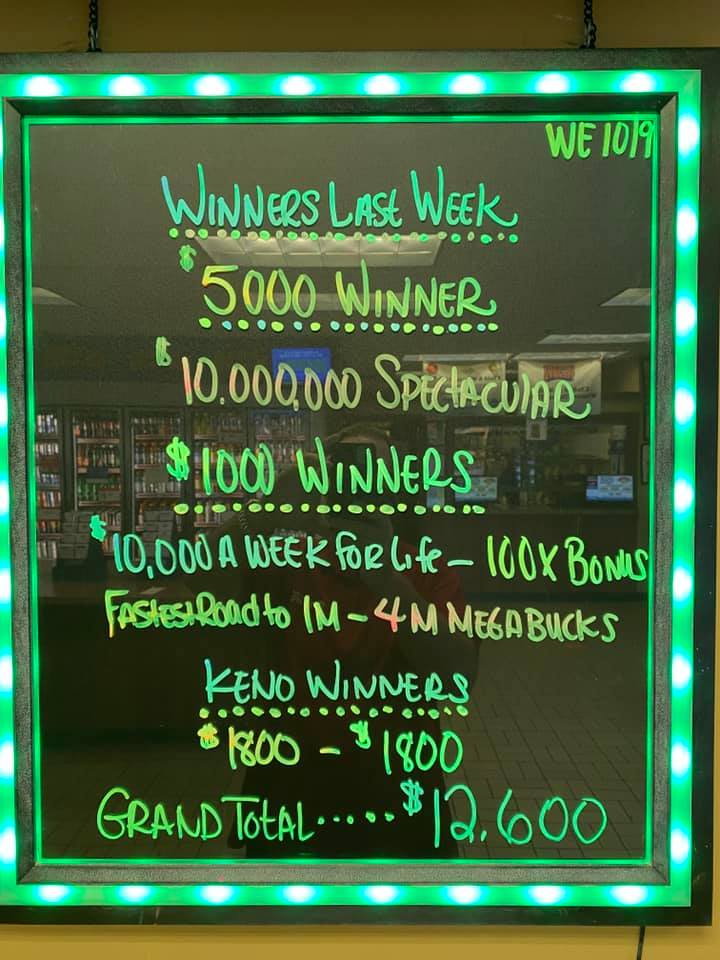 WE 10/9
WINNERS LAST WEEK
$5000 WINNER
$10.000,000 SPECTACULAR
$1000 WINNERS
$10,000 A WEEK FOR LIFE - 100X BONUS
FASTEST ROAD to 1M - 4M MEGABUCKS
KENO WINNERS
$1800 - $1800
GRAND TOTAL ..... $12,600